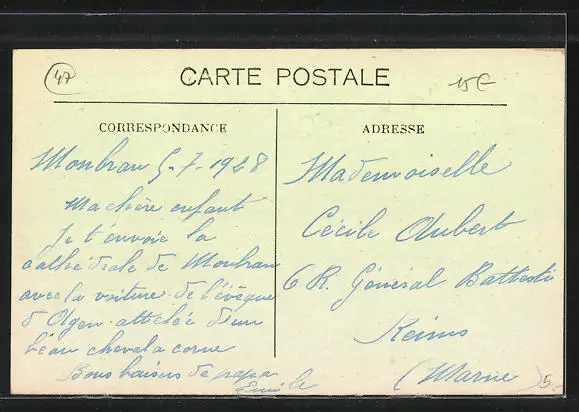 47
CARTE POSTALE
15€
CORRESPONDANCE
Monbran 5-7-1928
Ma chère enfant
Je t'envoie la
cathédrale de Monbran
avec la voiture de l'évêque
d'Agen attelée d'un
beau cheval a corne
Bons baisers de papa
Emile
ADRESSE
Mademoiselle
Cécile Aubert
6 R. Général Battesti
Reims
(Marne)
5.-